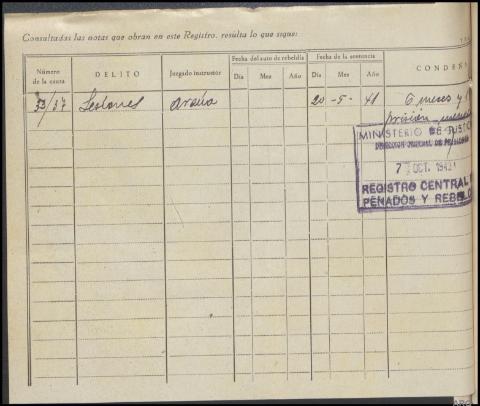 Consultadas las notas que obran en este Registro, resulta lo que sigue:
Número de la causa
DELITO
Juzgado instructor
Fecha del auto de rebeldía
Día Mes Año
Fecha de la sentencia
Día Mes Año
CONDEN
53/37 Lesiones 20 - 5 - 41 6 meses y 1
prisión
MINISTERIO DE JUSTIC
DIRECCION GENERAL DE PRISIONES
7 OCT. 1942
REGISTRO CENTRAL
PENADOS Y REBELD